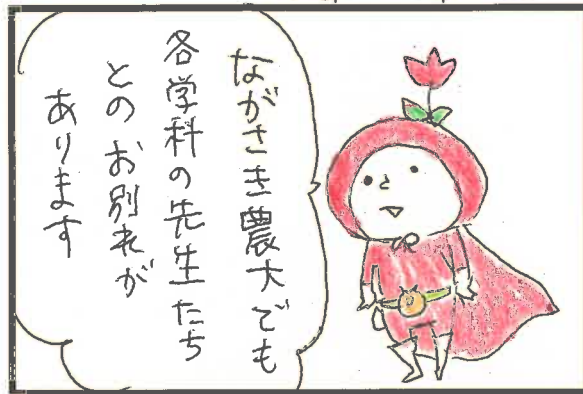 ながさき農大でも
各学科の先生たち
とのお別れが
あります